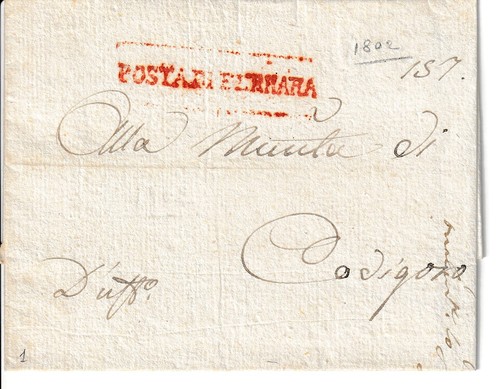 1802
157.
POSTA DI FERRARA
Alla Munità di
Codigoro
D'uffo.
1